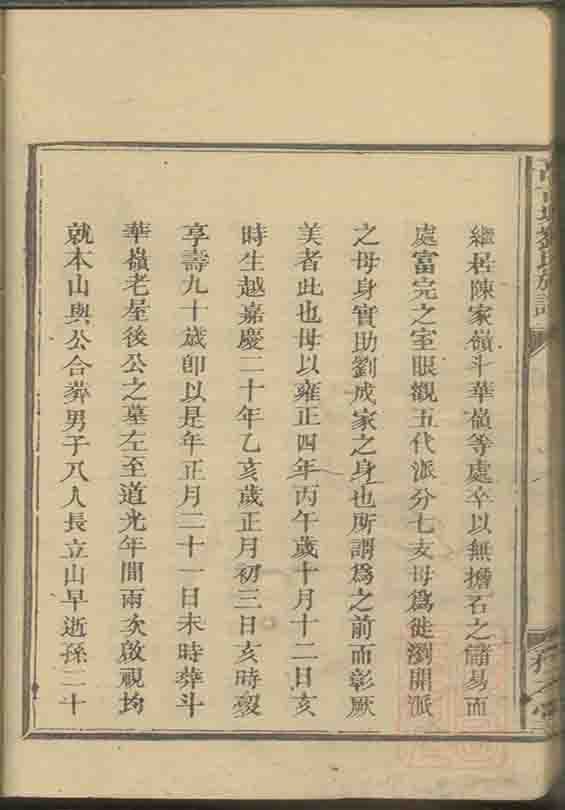 繼居陳家嶺斗華嶺等處卒以無擔石之儲易而
處富完之室眼觀五代派分七支母爲徙瀏開派
之母身實助劉成家之身也所謂爲之前而彰厥
美者此也母以雍正四年丙午歲十月十二日亥
時生越嘉慶二十年乙亥歲正月初三日亥時歿
享壽九十歲卽以是年正月二十一日未時葬斗
華嶺老屋後公之墓左至道光年間兩次啟視均
就本山與公合葬男子八人長立山早逝孫二十